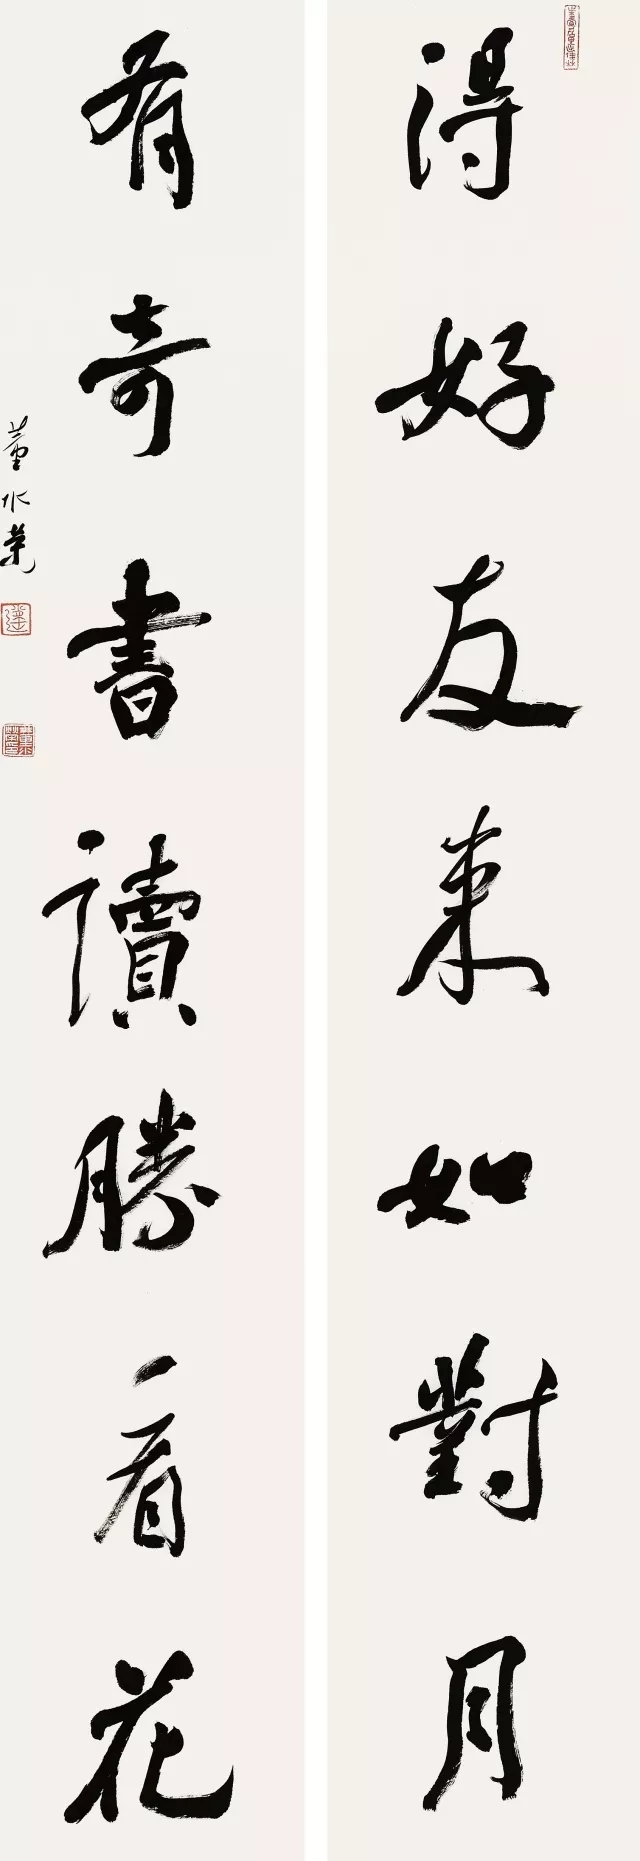 得好友来如對月
有奇書讀勝看花
董水荣